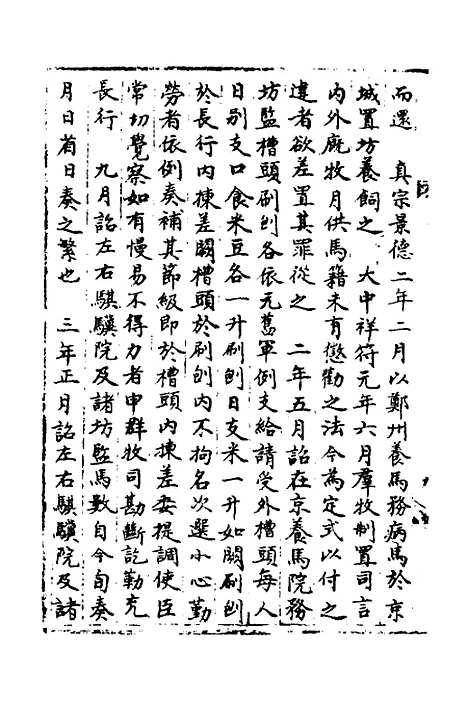 而還　真宗景德二年二月以鄭州養馬務病馬於京
城置坊養飼之　大中祥符元年六月羣牧制置司言
內外廐牧月供馬籍未有懲勸之法今為定式以付之
違者欲差置其罪從之　二年五月詔在京養馬院務
坊監槽頭刷刨各依元舊軍例支給請受外槽頭每人
日別支口食米豆各一升刷刨日支米一升如闕刷刨
於長行內揀差闕槽頭於刷刨內不拘名次選小心勤
勞者依例奏補其節級即於槽頭內揀差委提調使臣
常切覺察如有慢易不得力者申群牧司勘斷訖勒充
長行　九月詔左右騏驥院及諸坊監馬數自今旬奏
月日省日奏之繁也　三年正月詔左右騏驥院及諸